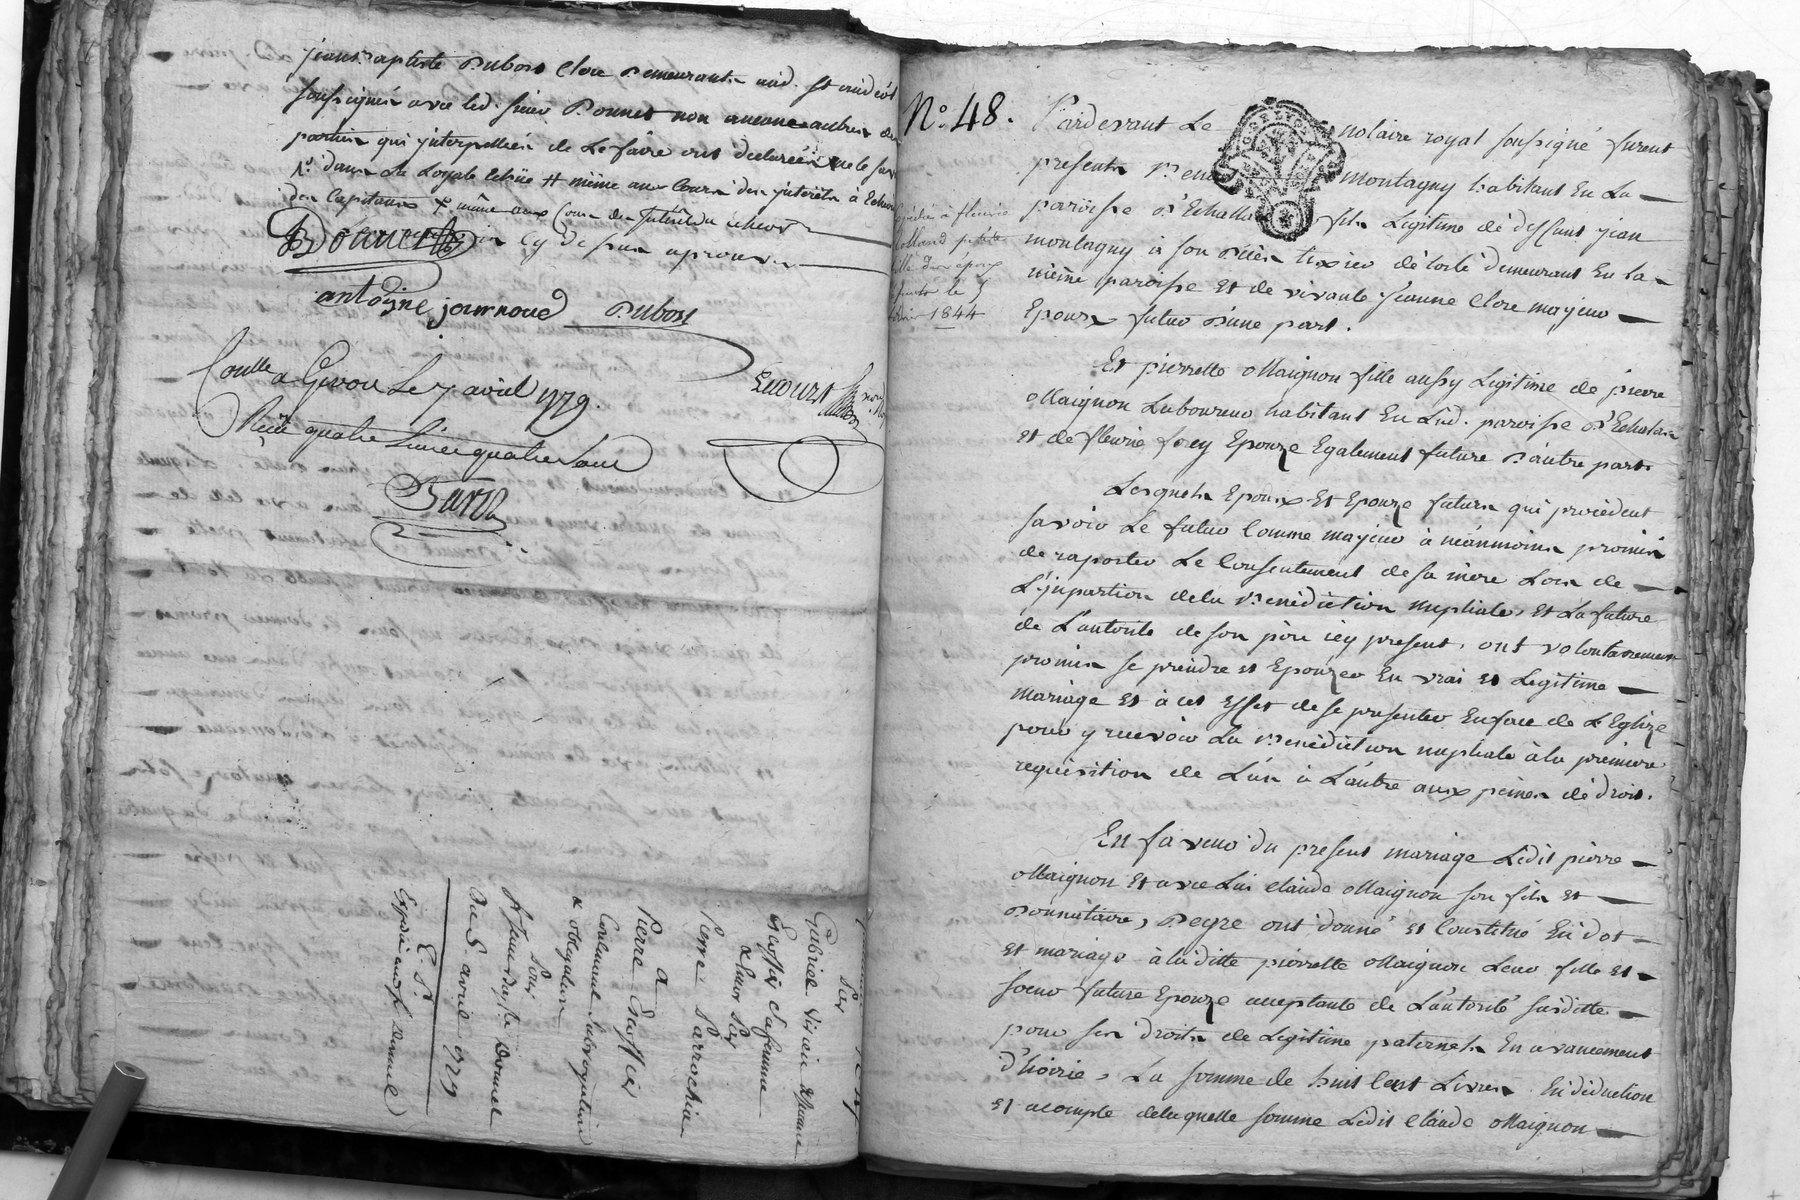 jean Baptiste Dubost Clerc Demeurants aud. St andeol
soussignés avec led. sieur Donnet non aucunes autres des
parties qui interpellées de Le faire ont declarées ne le sav
dans La Loyale Echüe # même aux Cours des jnterêts à Echeoir
des Capitaux même aux Cours des Interêts du Echeoir
cy dessus aprouvés
Donnet
antoine journoud Dubost
Conllé a Givors Le 7 avril 1779.
Reçu quatre Livres quatre sous
Lecourt
Expedié au sr Donnet
Du 5 avril 1779
E. Sr.
Sr Jean Bapte Donnet
Pour
& obligation
Contenant subrogation
Pierre Gueffier
a
Pierre Parrochia
& Leur Par
sa femme
Gabriel
Par
N.° 48.
Pardevant Le notaire royal soussigné furent
presents Ben montagny habitant En La
paroisse D'Echallas fils Legitime de deffunt jean
montagny à son décès tixier de toile demeurant En La
même paroisse Et de vivante Jeanne Clere majeur
Epoux futur D'une part.
Expedié à fleurie
petite
fille des époux
le 5
1844
Et pierrette Maignon fille aussy Legitime de pierre
Maignon Laboureur habitant En Lad. paroisse D'Echalas
Et de fleurie Epouze Egalement future D'autre part.
Lesquels Epoux Et Epouze futurs qui procédent
savoir Le futur Comme majeur à néanmoins promis
de raporter Le Consentement de sa mere Lors de
L'jmpartion de la Benédiction nuptiale, Et La future
de L'autorité de son père icy present, ont volontairement
promis se prendre Et Epouzer En vrai Et Legitime
mariage Et à cet Effet de se presenter En face de L'Eglize
pour y recevoir La Benédiction nuptiale à la premiere
requisition de L'un à L'autre aux peines de droit.
En faveur du present mariage Ledit pierre
Maignon Et avec Lui claude Maignon son fils Et
Donnataire, Degré ont donné Et Constitué En dot
Et mariage à la ditte pierrette Maignon Leur fille Et
soeur future Epouze acceptante de L'autorité susditte
pour ses Droits de Legitime paternels En avancement
d'hoirie, La somme de huit Cent Livres En déduction
Et acompte de laquelle somme Ledit Claude Maignon